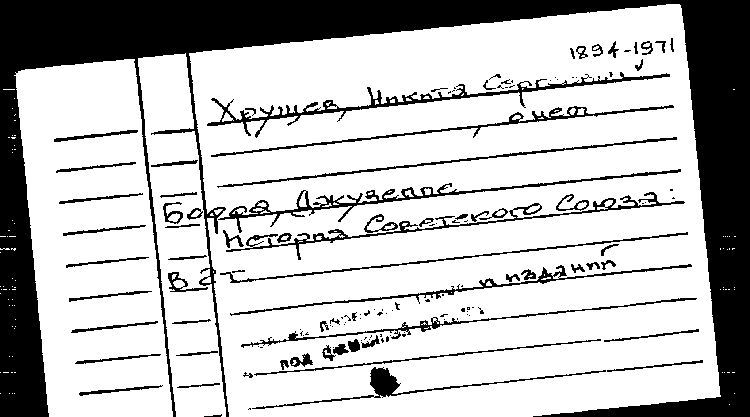 1894-1971
Хрущев, Никита Сергеевич
, о нем
Боффа, Джузеппе
История Советского Союза:
В 2 т.
и изданий
под